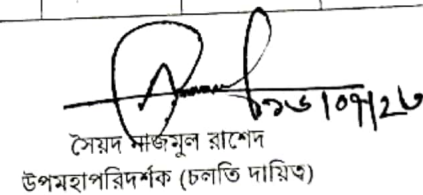 সৈয়দ নাজমুল রাশেদ
উপমহাপরিদর্শক (চলতি দায়িত্ব)